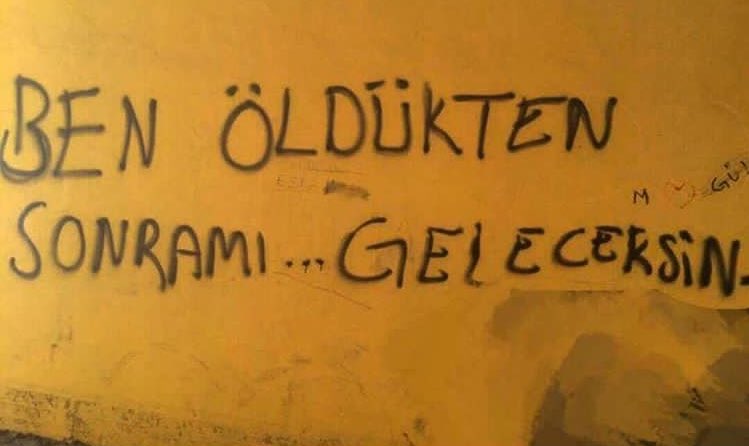 BEN ÖLDÜKTEN
M GÜ
SONRAMI... GELECEKSİN